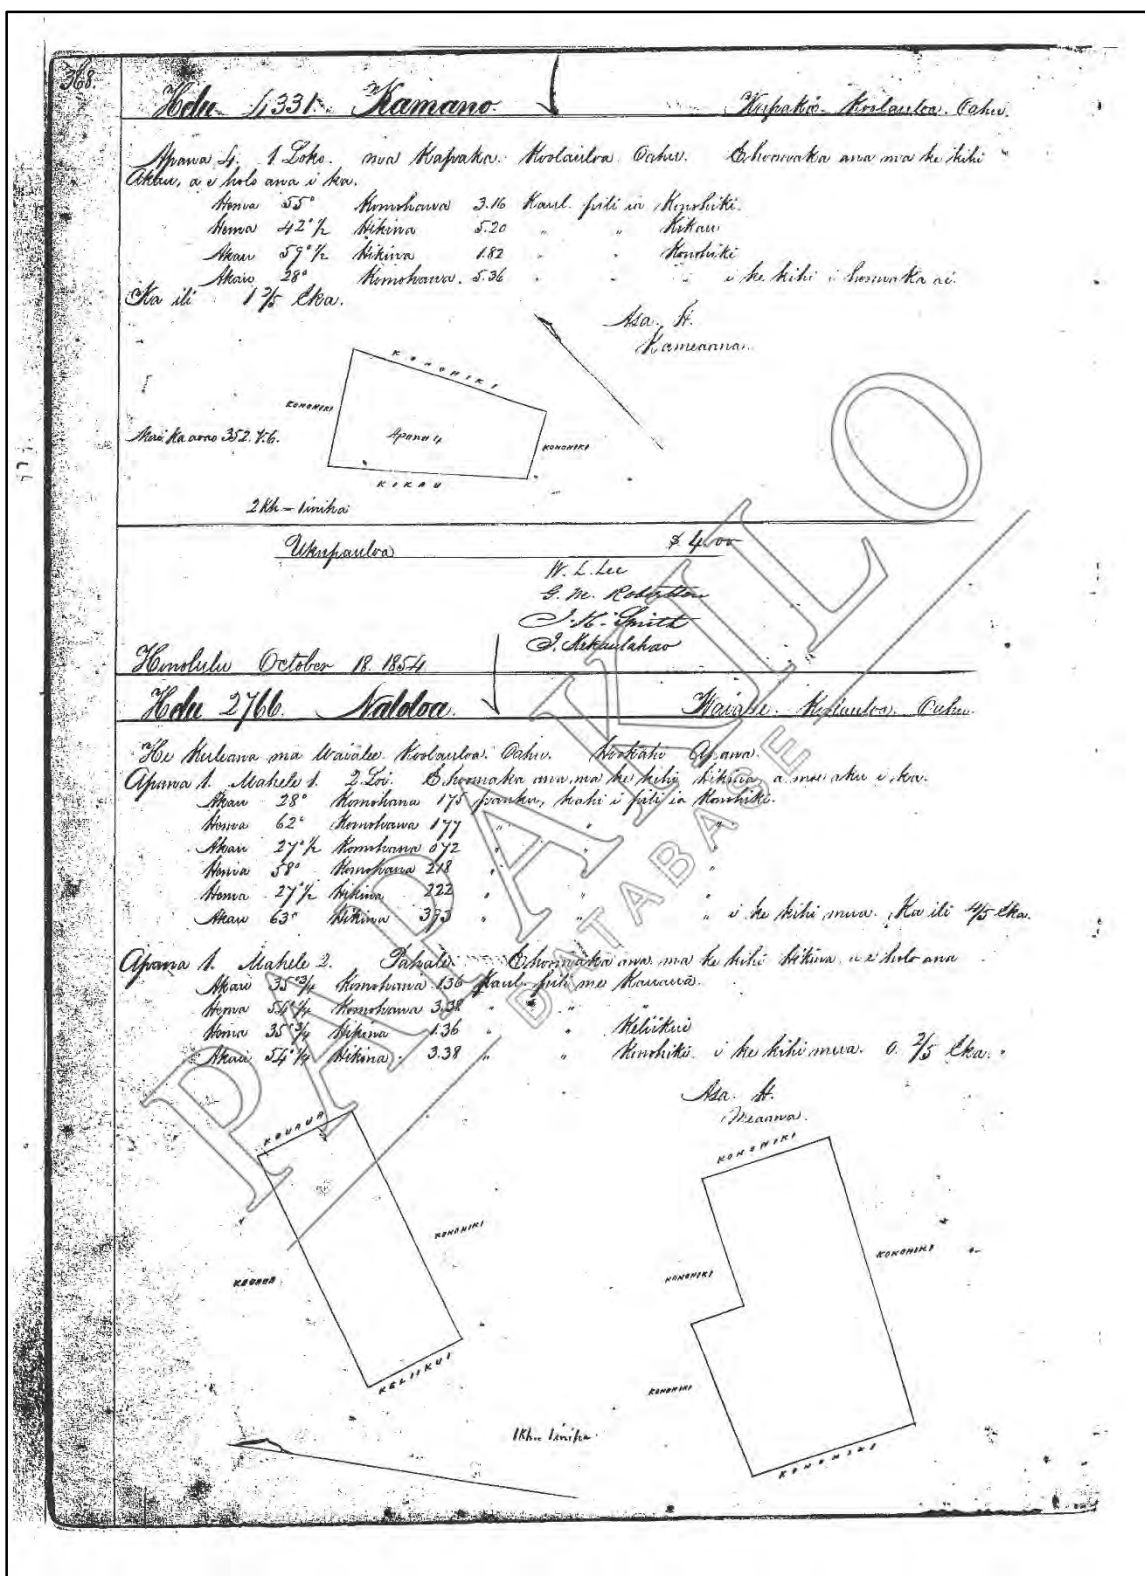 368.
Helu 4331. Kamano. Kapaka Koolauloa. Oahu.
Apana 4. 1 Loko. ma Kapaka. Koolauloa Oahu. E hoomaka ana ma ke kihi
Akau, a e holo ana i ka.
Hema 55° Komohana 3.16 Kaul. pili ia Konohiki.
Hema 42°½ Hikina 5.20 " " Kikau
Akau 59°½ Hikina 1.82 " " Konohiki
Akau 28° Komohana. 5.36 " " " i ke kihi i hoomaka ai.
Ka ili 1 3/5 Eka.
Asa. H.
Kameaana.
KONOHIKI
KONOHIKI
Apana 4
KONOHIKI
352. V.6.
KIKAU
2 Kh = 1 iniha
Ukupauloa $ 4.00
W. L. Lee
G. M. Robertson
J. H. Smith
J. Kekaulahao
Honolulu October 18. 1854
Helu 2766. Naloloa. Waialee. Koolauloa. Oahu.
He Kuleana ma Waialee. Koolauloa. Oahu. Hookahi Apana.
Apana 1. Mahele 1. 2 Loi. E hoomaka ana ma ke kihi Hikina, a moe aku i ka.
Akau 28° Komohana 175 pauku, kahi i pili ia Konohiki.
Hema 62° Komohana 177 " " "
Akau 27°½ Komohana 072 " " "
Hema 58° Komohana 218 " " "
Hema 27°½ Hikina 222 " " "
Akau 63° Hikina 393 " " " i ke kihi mua. Ka ili 4/5 Eka.
Apana 1. Mahele 2. Pahale. E hoomaka ana ma ke kihi Hikina a e holo ana
Akau 35°¾ Komohana 1.36 Kaul. pili me Kauaua.
Hema 54°¼ Komohana 3.38 " " "
Hema 35°¾ Hikina 1.36 " " Keliikui
Akau 54°¼ Hikina. 3.38 " " Konohiki. i ke kihi mua. 0. 2/5 Eka.
Asa. H.
Meaana.
KAUAUA
KONOHIKI
KONOHIKI
KONOHIKI
KONOHIKI
KAUAUA
KELIIKUI
KONOHIKI
1 Kh = 1 iniha.
KONOHIKI
PAPAKILO
DATABASE